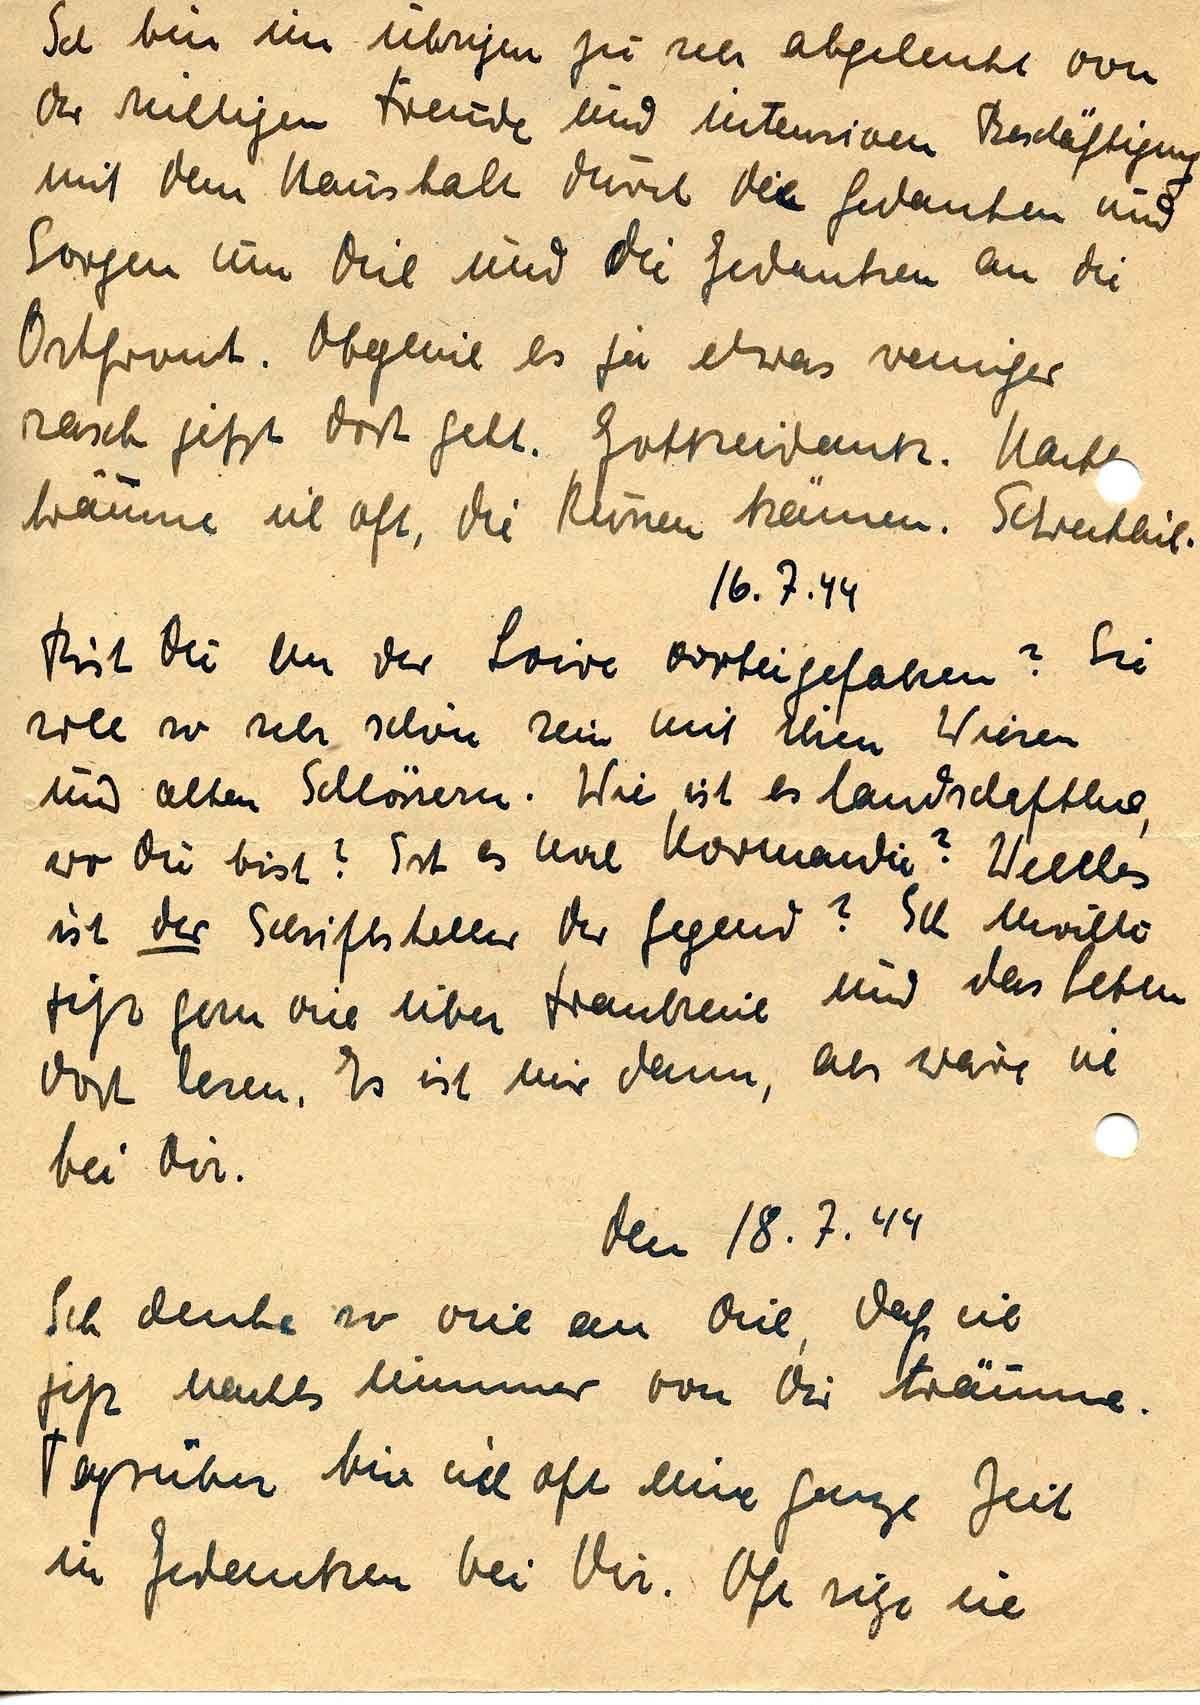 Ich bin im übrigen zu sehr abgelenkt von
der richtigen Freude und intensiven Beschäftigung
mit dem Haushalt durch die Gedanken und
Sorgen um Dich und die Gedanken an die
Ostfront. Obgleich es ja etwas weniger
rasch jetzt dort geht. Gottseidank. Nachts
träume ich oft, die Russen kämen. Schrecklich.
16.7.44
Bist Du an der Loire vorbeigefahren? Sie
soll so sehr schön sein mit ihren Wiesen
und alten Schlössern. Wie ist es landschaftlich,
wo Du bist? Ist es noch Normandie? Welches
ist der Schriftsteller der Gegend? Ich möchte
jetzt gern viel über Frankreich und das Leben
dort lesen. Es ist mir dann, als wäre ich
bei Dir.
Den 18.7.44
Ich denke so viel an Dich, daß ich
jetzt nachts nimmer von Dir träume.
Tagsüber bin ich oft eine ganze Zeit
in Gedanken bei Dir. Oft sitze ich